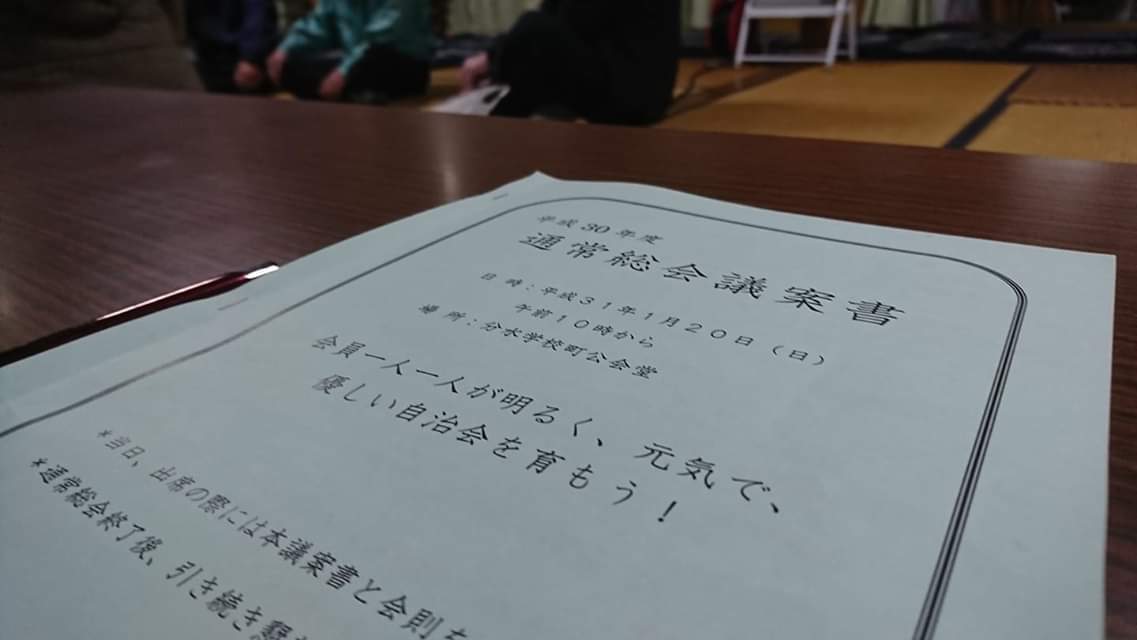 平成30年度
通常総会議案書
日時：平成31年1月20日（日）
午前10時から
場所：分水学校町公会堂
会員一人一人が明るく、元気で、
優しい自治会を育もう！
＊当日、出席の際には本議案書と会則を
＊通常総会終了後、引き続き懇